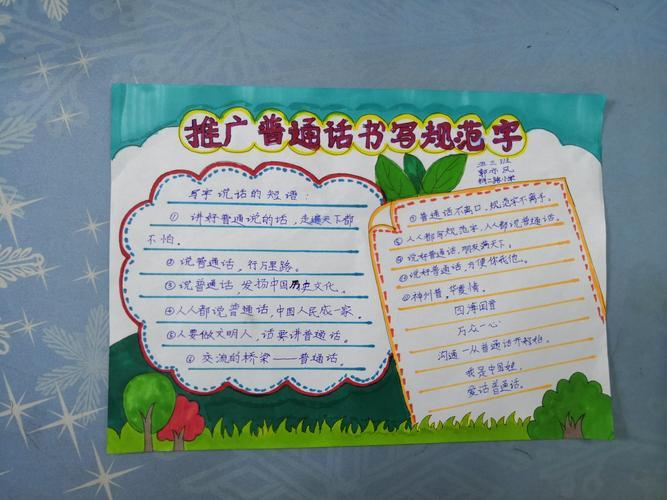 推广普通话书写规范字
五三班
写字说话的短语:
① 讲好普通说的话,走遍天下都
不怕。
②说普通话,行万里路。
③说普通话 发扬中国历史文化。
④人人都说普通话,中国人民成一家。
⑤人要做文明人,话要讲普通话。
⑥ 交流的桥梁——普通话。
①普通话不离口,规范字不离手。
②人人都写规范字,人人都说普通话。
③说好普通话,朋友满天下。
④说好普通话,方便你我他。
⑤神州普,华夏情。
四海同音
万众一心
沟通-从普通话开始始。
我是中国娃
爱话普通话。